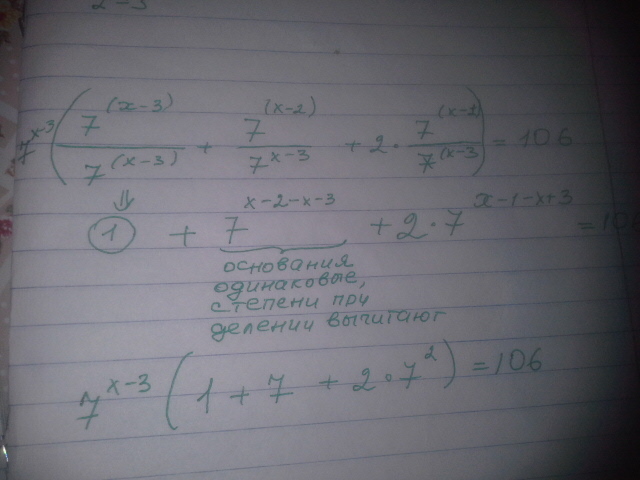 2-3
7^{x-3} ( 7^{(x-3)} / 7^{(x-3)} + 7^{(x-2)} / 7^{x-3} + 2 · 7^{(x-1)} / 7^{(x-3)} ) = 106
⇓
1 + 7^{x-2-x-3} + 2 · 7^{x-1-x+3} = 10
основания
одинаковые,
степени при
делении вычитают
7^{x-3} ( 1 + 7 + 2 · 7^2 ) = 106